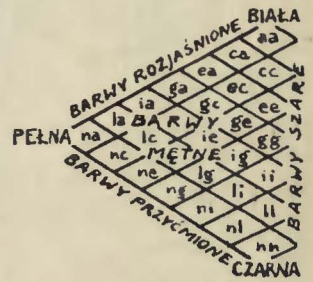 BIAŁA
aa
BARWY ROZJAŚNIONE
ca
ea cc
ga ec
ia gc ee
la BARWY ge
PEŁNA na lc ie gg
nc MĘTNE ig
ne lg ii
ng li
ni ll
nl
nn
BARWY SZARE
BARWY PRZYĆMIONE
CZARNA